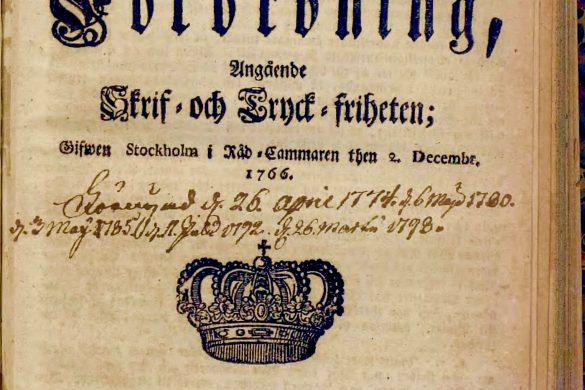 Förordning,
Angående
Skrif-och Tryck-friheten;
Gifwen Stockholm i Råd-Cammaren then 2. Decembr.
1766.
d. 26. april 1774. d. 6 Maji 1780.
d. 3 Maij 1785. d. 11. Julii 1792. d. 26. Martii 1798.